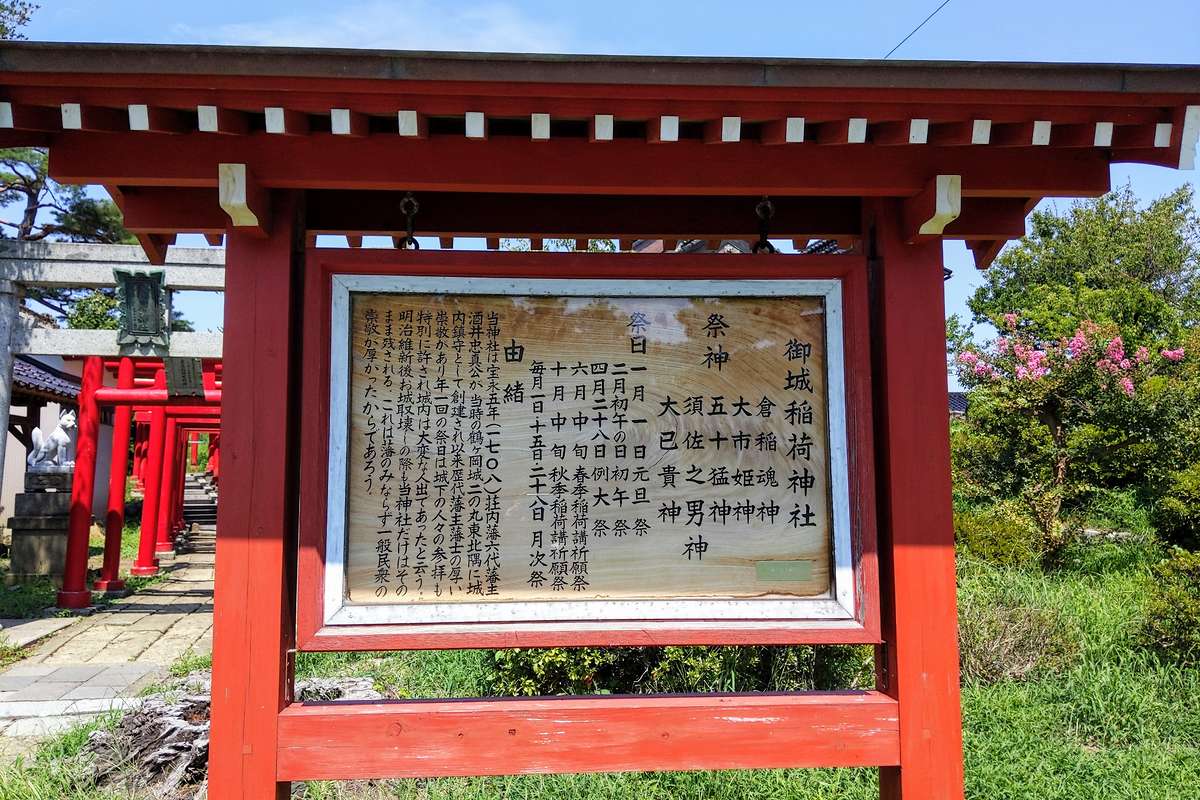 御城稲荷神社
祭神
倉稲魂神
大市姫神
五十猛神
須佐之男神
大己貴神
祭日
一月一日元旦祭
二月初午の日初午祭
四月二十八日例大祭
六月中旬春季稲荷講祈願祭
十月中旬秋季稲荷講祈願祭
毎月一日十五日二十八日月次祭
由緒
当神社は宝永五年(一七〇八)荘内藩六代藩主
酒井忠真公が当時の鶴ヶ岡城二の丸東北隅に城
内鎮守として創建され以来歴代藩主藩士の厚い
崇敬があり年一回の祭日は城下の人々の参拝も
特別に許され城内は大変な人出であったと云う。
明治維新後お城取壊しの際も当神社だけはその
まま残される、これは藩のみならず一般民衆の
崇敬が厚かったからであろう。